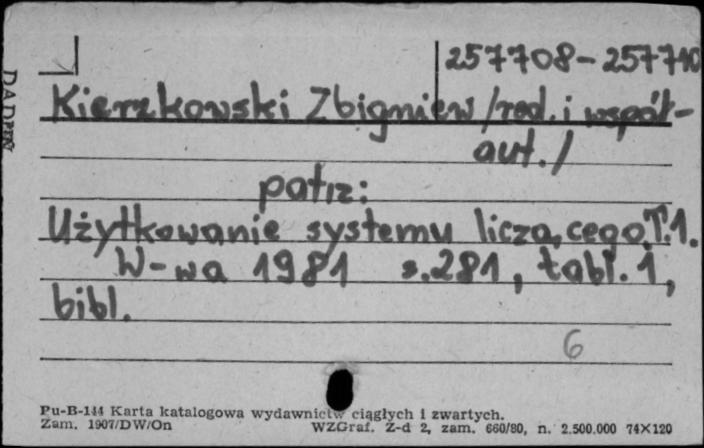 257708-257710
Kierzkowski Zbigniew /red. i współ-
aut./
patrz:
Użytkowanie systemu liczącego.T.1.
W-wa 1981 s.281, tabl. 1,
bibl.
6
Pu-B-144 Karta katalogowa wydawnictw ciągłych i zwartych.
Zam. 1907/DW/On WZGraf. Z-d 2, zam. 660/80, n. 2.500.000 74X120